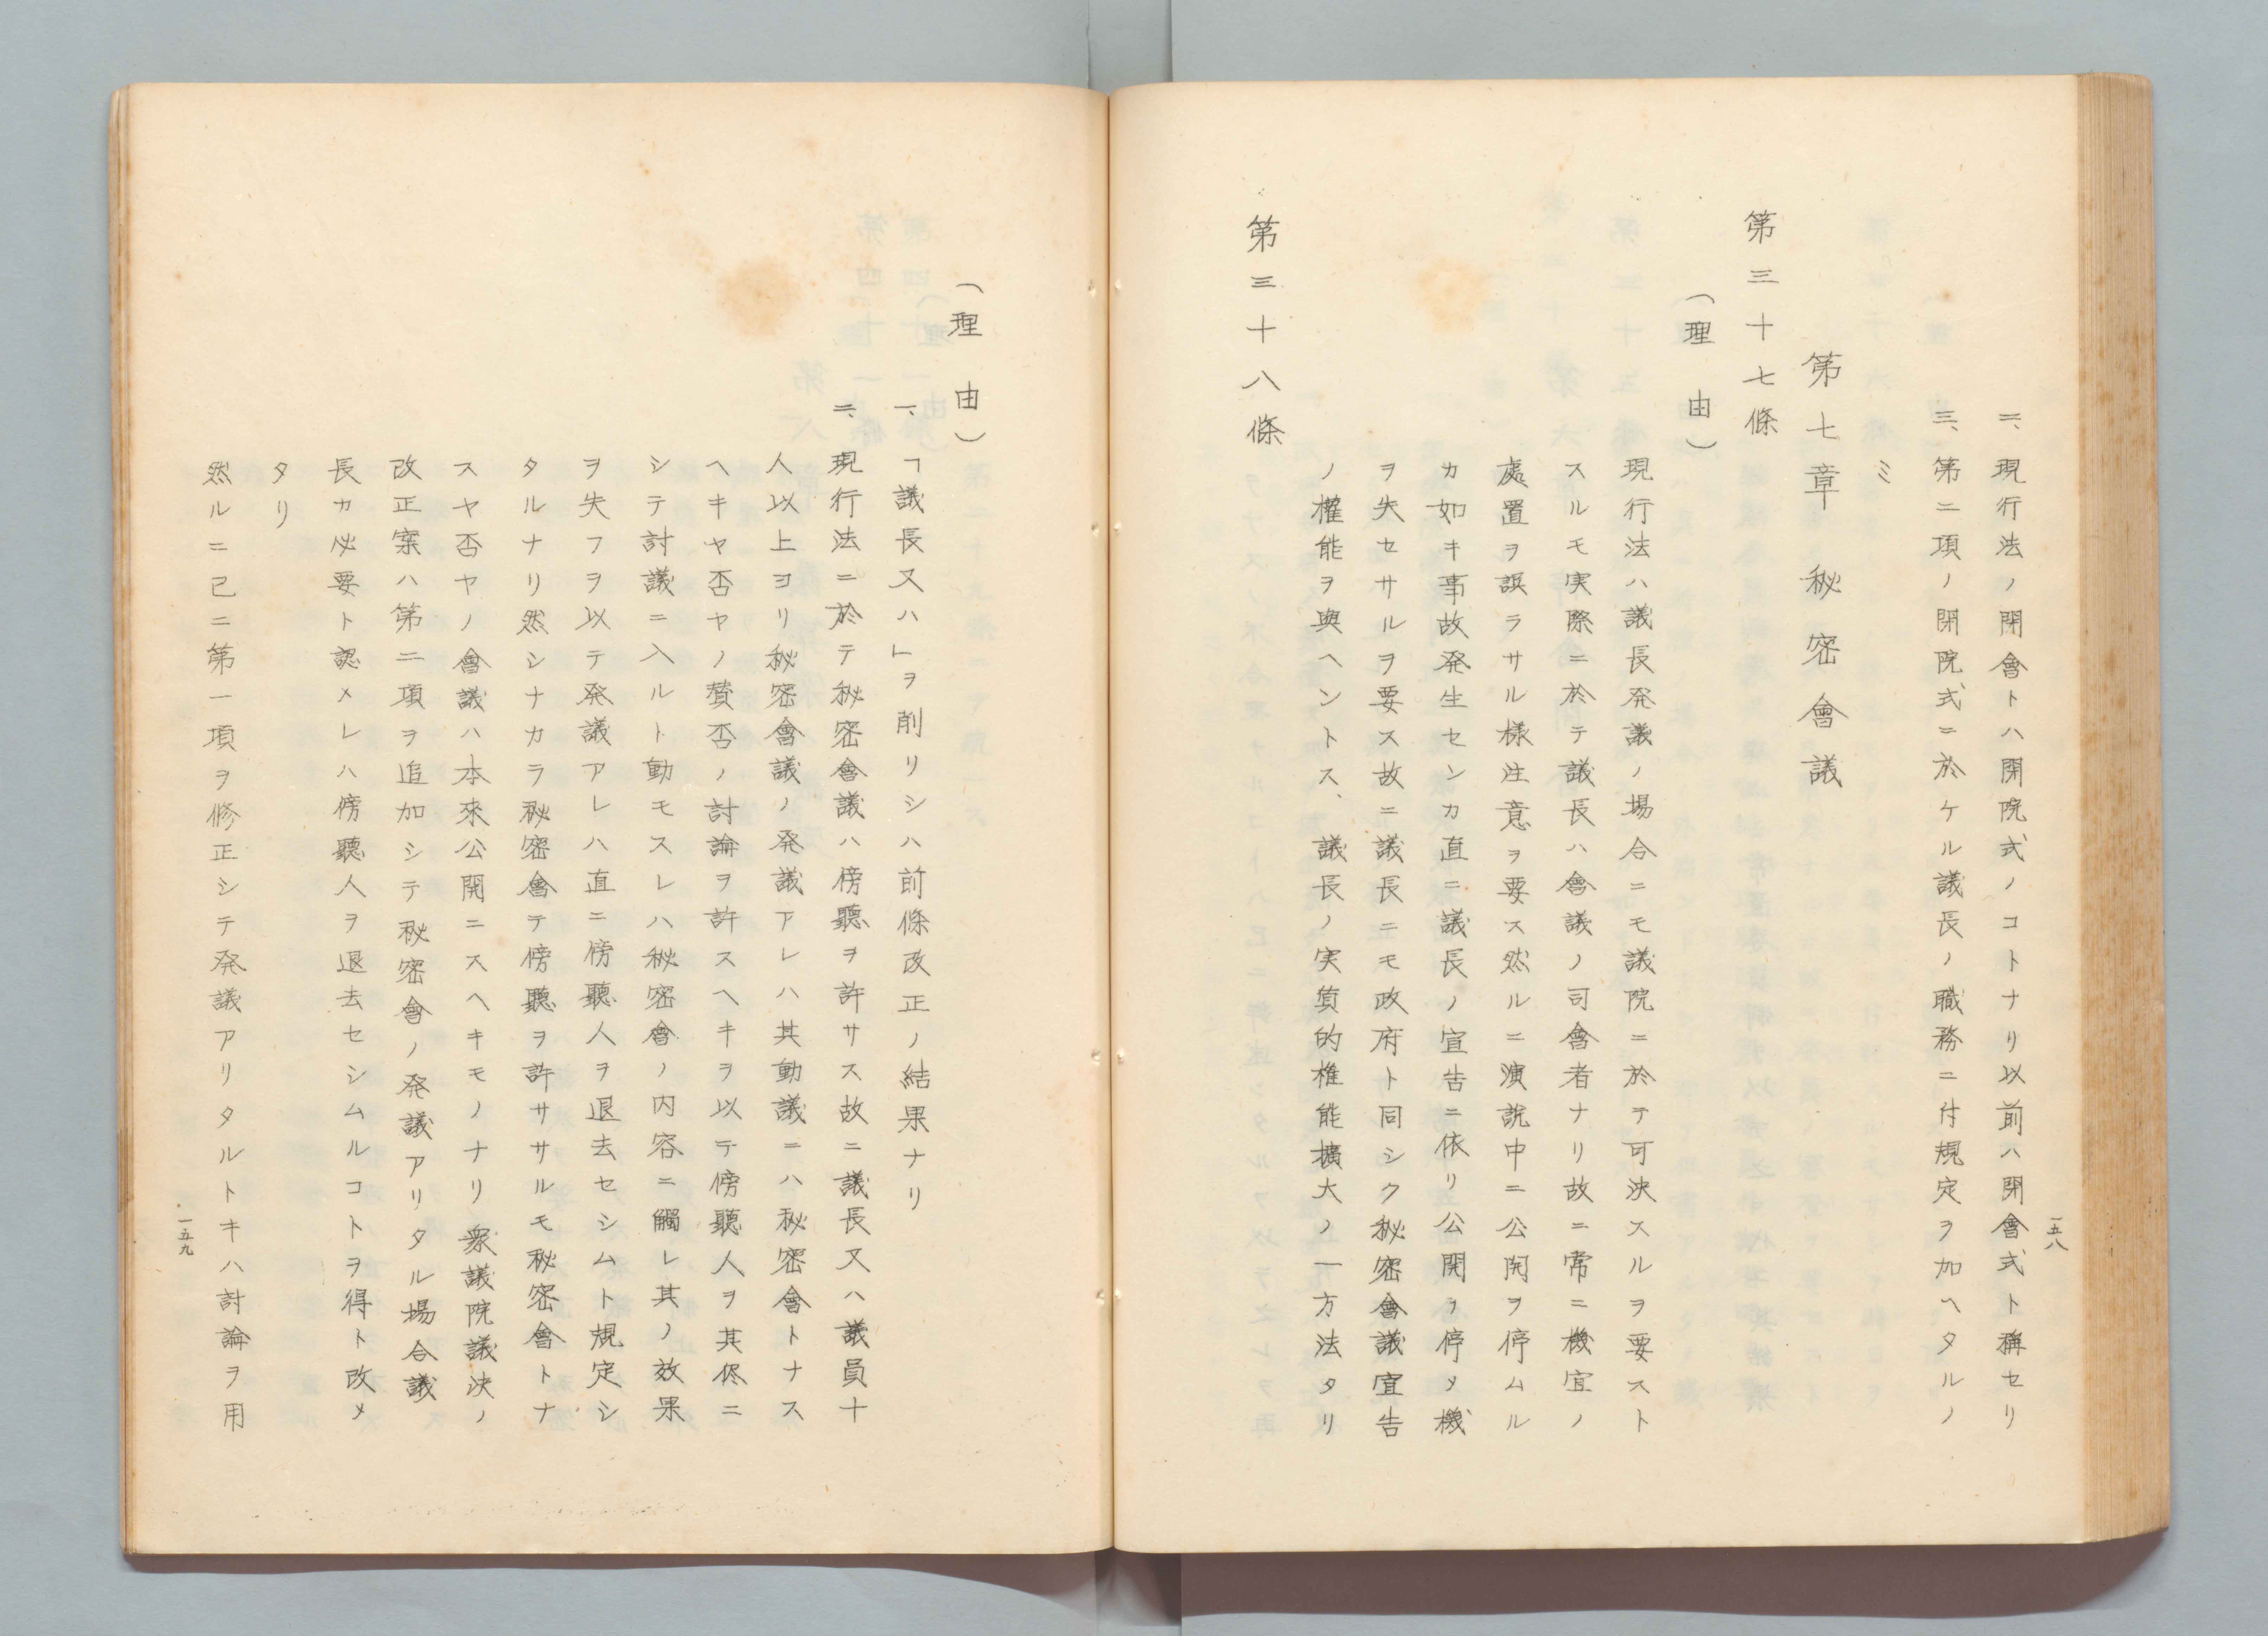 二、現行法ノ開會トハ開院式ノコトナリ以前ハ開會式ト稱セリ
三、第二項ノ閉院式ニ於ケル議長ノ職務ニ付規定ヲ加ヘタルノ
ミ
第七章 秘密會議
第三十七條
(理由)
現行法ハ議長発議ノ場合ニモ議院ニ於テ可決スルヲ要スト
スルモ実際ニ於テ議長ハ會議ノ司會者ナリ故ニ常ニ機宜ノ
處置ヲ誤ラサル様注意ヲ要ス然ルニ演説中ニ公開ヲ停ムル
カ如キ事故発生センカ直ニ議長ノ宣告ニ依リ公開ヲ停メ機
ヲ失セサルヲ要ス故ニ議長ニモ政府ト同シク秘密會議宣告
ノ權能ヲ與ヘントス、議長ノ実質的権能擴大ノ一方法タリ
第三十八條
一五八
(理由)
一、「議長又ハ」ヲ削リシハ前條改正ノ結果ナリ
二、現行法ニ於テ秘密會議ハ傍聽ヲ許サス故ニ議長又ハ議員十
人以上ヨリ秘密會議ノ発議アレハ其動議ニハ秘密會トナス
ヘキヤ否ヤノ賛否ノ討論ヲ許スヘキヲ以テ傍聽人ヲ其侭ニ
シテ討議ニ入ルト動モスレハ秘密會ノ内容ニ觸レ其ノ效果
ヲ失フヲ以テ発議アレハ直ニ傍聽人ヲ退去セシムト規定シ
タルナリ然シナカラ秘密會テ傍聽ヲ許ササルモ秘密會トナ
スヤ否ヤノ會議ハ本來公開ニスヘキモノナリ衆議院議決ノ
改正案ハ第二項ヲ追加シテ秘密會ノ発議アリタル場合議
長カ必要ト認メレハ傍聽人ヲ退去セシムルコトヲ得ト改メ
タリ
然ルニ已ニ第一項ヲ修正シテ発議アリタルトキハ討論ヲ用
一五九